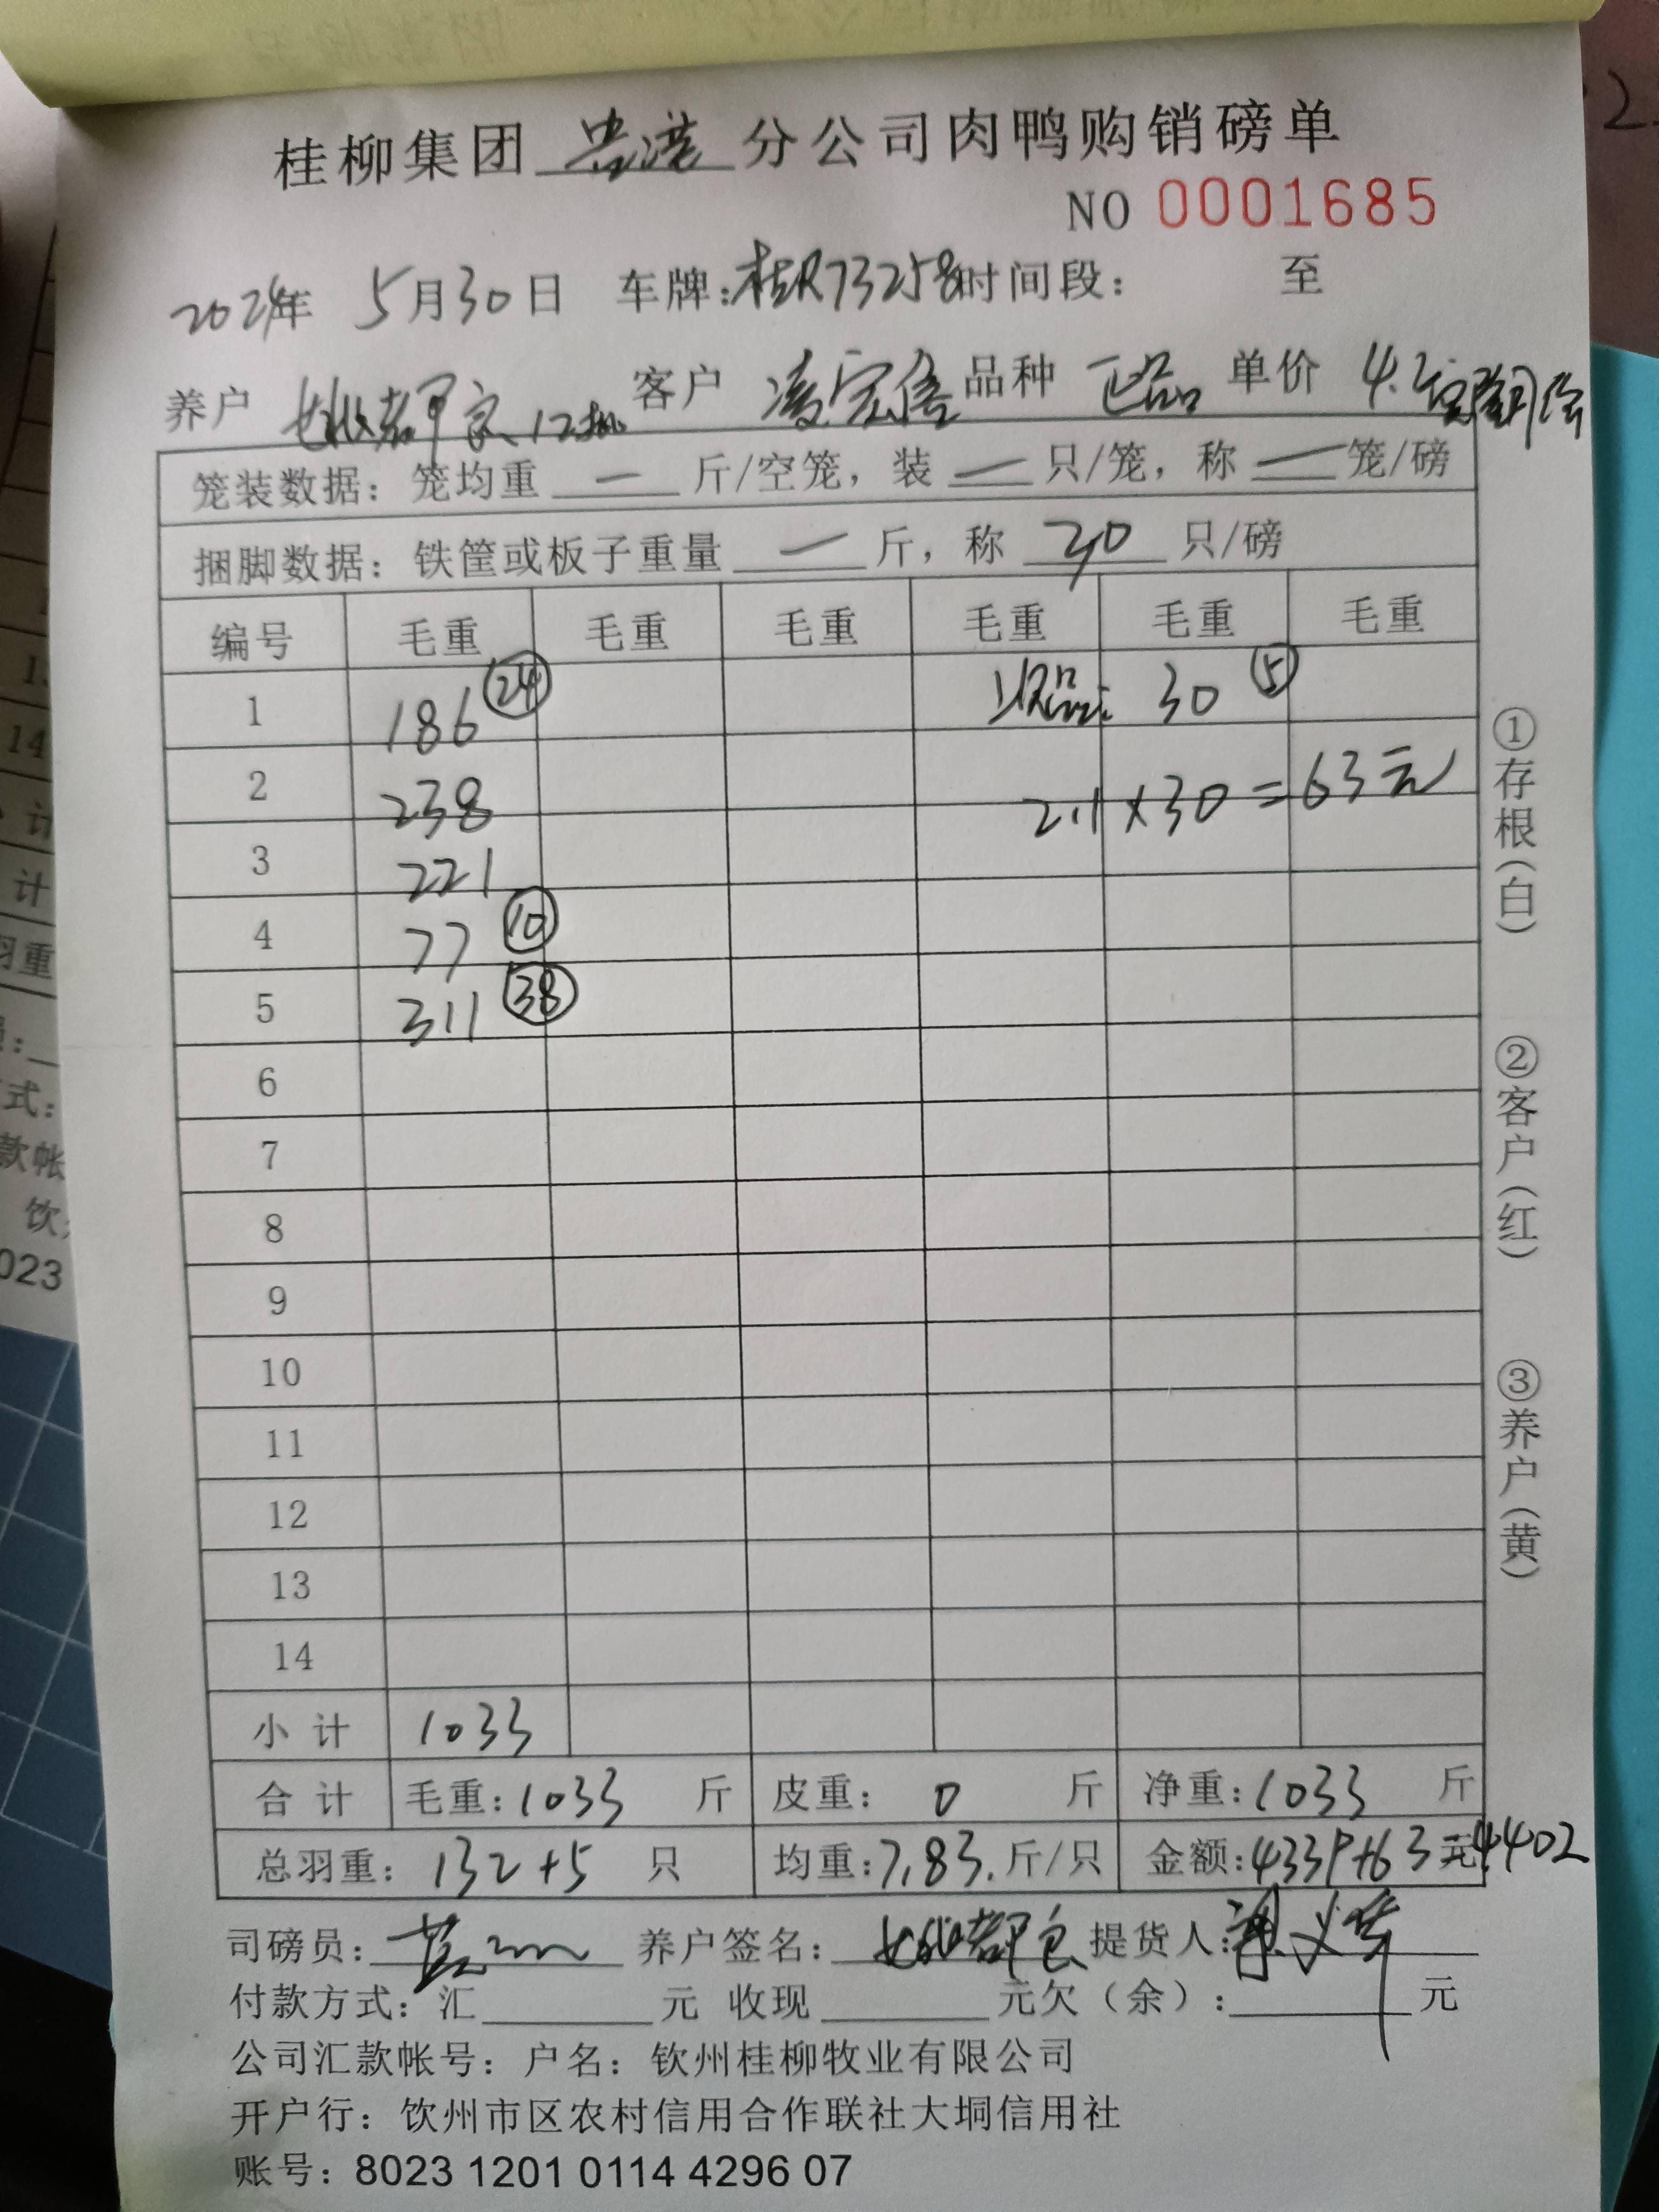 桂柳集团 贵港 分公司肉鸭购销磅单
NO 0001685
2024年 5月30日 车牌:桂R73258 时间段: 至
养户 客户 凌宏 品种 正品 单价 4.2
笼装数据: 笼均重 — 斤/空笼, 装 — 只/笼, 称 — 笼/磅
捆脚数据: 铁筐或板子重量 — 斤, 称 30 只/磅
编号 毛重 毛重 毛重 毛重 毛重 毛重
1 186 24 次品: 30 5
2 238 2.1×30=63元
3 221
4 77 10
5 311 38
6
7
8
9
10
11
12
13
14
小计 1033
合计 毛重:1033 斤 皮重: 0 斤 净重:1033 斤
总羽重: 132+5 只 均重:7.83.斤/只 金额:4339+63元 4402
司磅员: 养户签名: 提货人:
付款方式: 汇 元 收现 元欠(余): 元
公司汇款帐号: 户名: 钦州桂柳牧业有限公司
开户行: 钦州市区农村信用合作联社大垌信用社
账号: 8023 1201 0114 4296 07
①存根(白)
②客户(红)
③养户(黄)